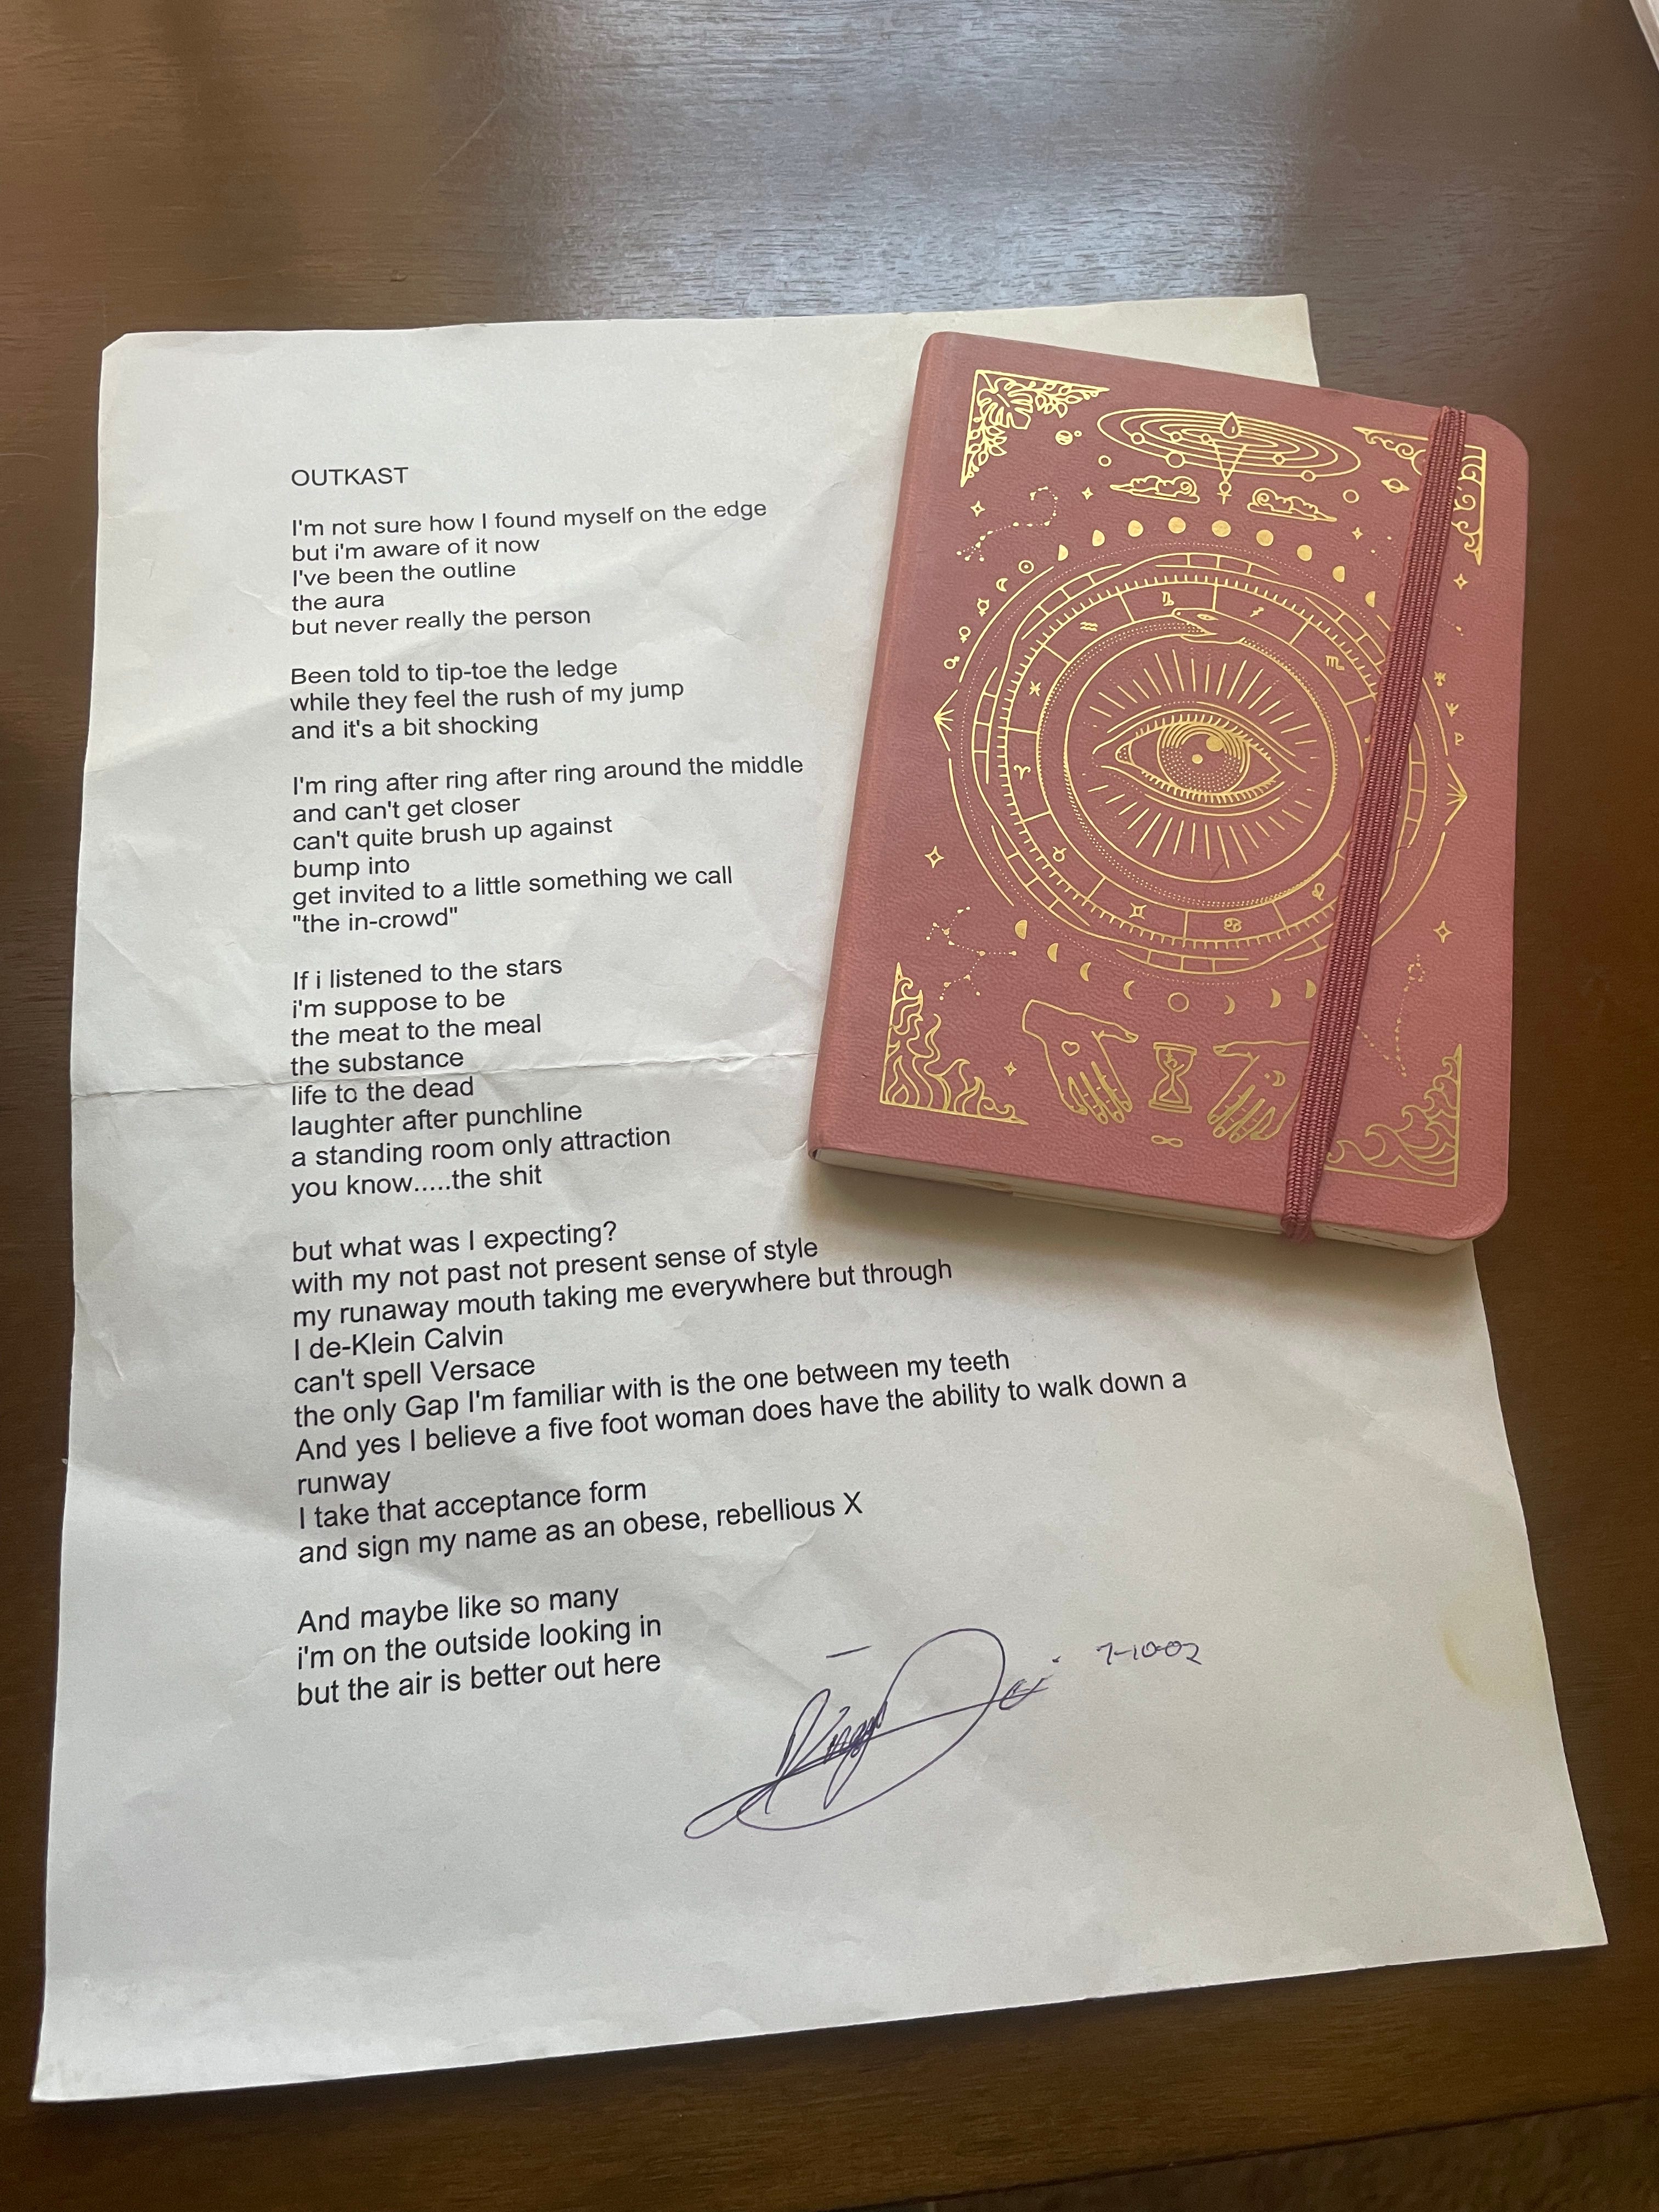 OUTKAST
I'm not sure how I found myself on the edge
but i'm aware of it now
I've been the outline
the aura
but never really the person
Been told to tip-toe the ledge
while they feel the rush of my jump
and it's a bit shocking
I'm ring after ring after ring around the middle
and can't get closer
can't quite brush up against
bump into
get invited to a little something we call
"the in-crowd"
If i listened to the stars
i'm suppose to be
the meat to the meal
the substance
life to the dead
laughter after punchline
a standing room only attraction
you know.....the shit
but what was I expecting?
with my not past not present sense of style
my runaway mouth taking me everywhere but through
I de-Klein Calvin
can't spell Versace
the only Gap I'm familiar with is the one between my teeth
And yes I believe a five foot woman does have the ability to walk down a
runway
I take that acceptance form
and sign my name as an obese, rebellious X
And maybe like so many
i'm on the outside looking in
but the air is better out here
7-10-02